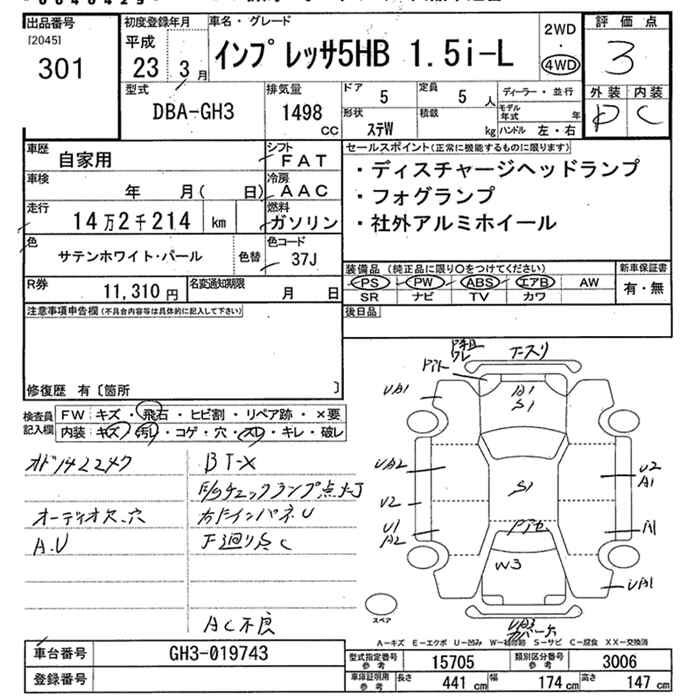 出品番号
[2045]
301
初度登録年月
平成
23 3月
車名・グレード
インプレッサ5HB 1.5i-L
2WD
・
4WD
評価点
3
外装 内装
D C
型式
DBA-GH3
排気量
1498
cc
ドア
5
定員
5 人
形状
ステW
積載
kg
ディーラー・並行
モデル年式 年
ハンドル 左・右
車歴
自家用
シフト
FAT
車検
年 月( 日)
冷房
AAC
走行
14万2千214 km
燃料
ガソリン
色
サテンホワイト・パール
色替
色コード
37J
R券
11,310円
名変通知期限
月 日
セールスポイント(正常に機能するものに限ります)
・ディスチャージヘッドランプ
・フォグランプ
・社外アルミホイール
装備品(純正品に限り○をつけてください)
PS PW ABS エアB AW
SR ナビ TV カワ
新車保証書
有・無
後日品
注意事項申告欄(不具合内容等は具体的に記入して下さい)
修復歴 有〔箇所 〕
検査員記入欄
FW キズ・飛石・ヒビ割・リペア跡・×要
内装 キズ・汚れ・コゲ・穴・スレ・キレ・破レ
オド142247
BT-X
E/Gチェックランプ点灯
オーディオ欠.穴
A.U
下廻り点C
AC不良
下スリ
UA1
A1
S1
UA2
U2
U1
A2
S1
U2
A1
A1
W3
UA1
スペア
A-キズ E-エクボ U-凹み W-補修跡 S-サビ C-腐食 XX-交換済
車台番号
GH3-019743
登録番号
型式指定番号 参考
15705
類別区分番号 参考
3006
車庫証明用 参考
長さ 441 cm
幅 174 cm
高さ 147 cm